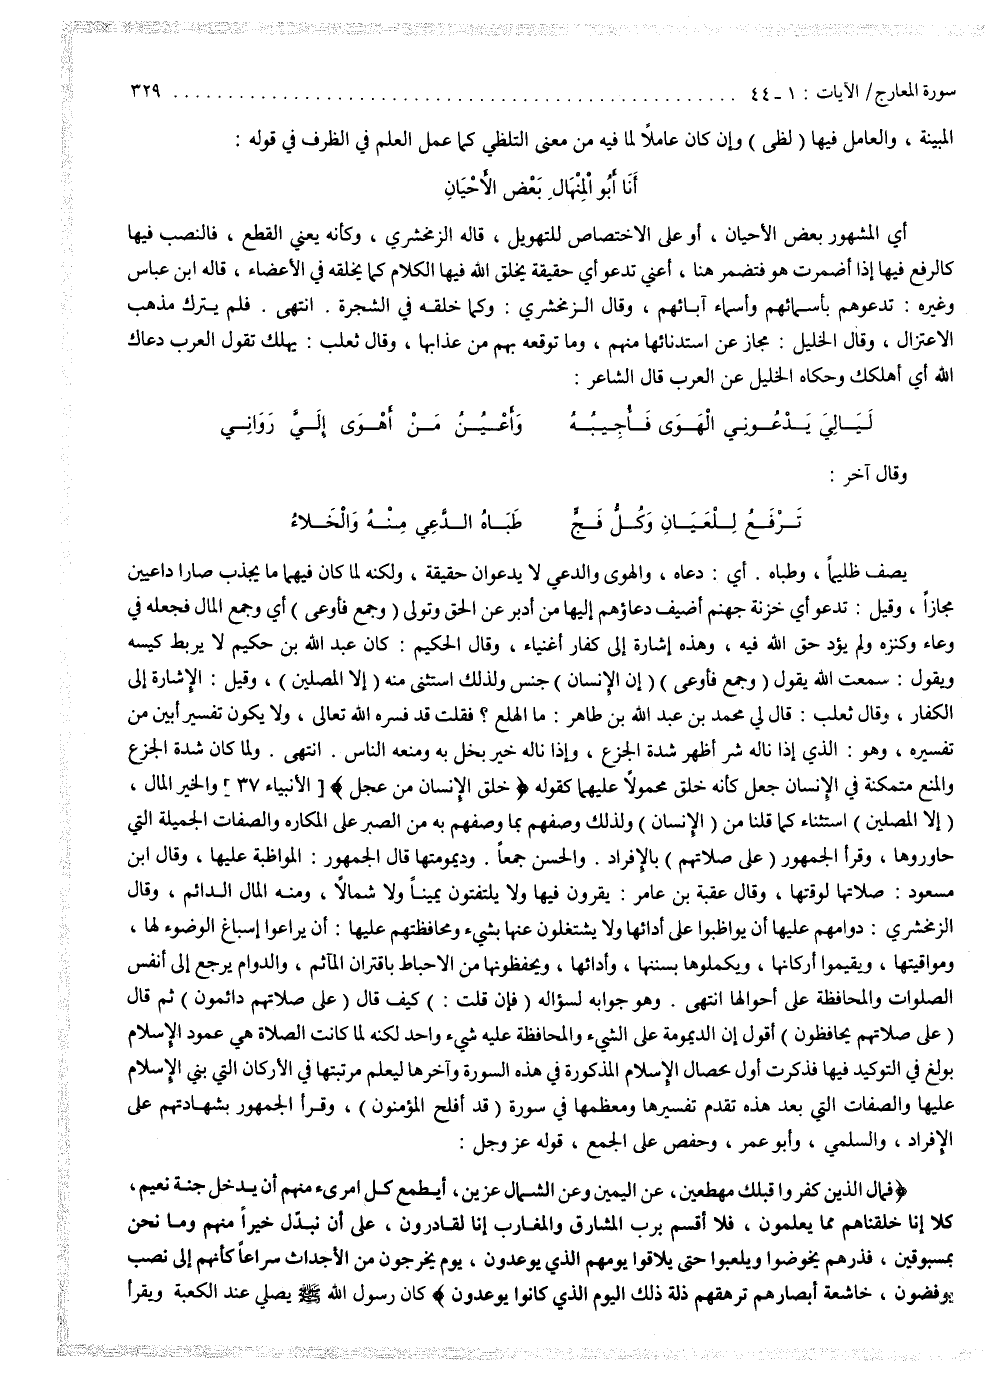 سورة المعارج/ الآيات : ١ ـ ٤٤ . . . . . . . . . . . . . . . . . . . . . . . . . . . . . . . . . . . . . . . ٣٢٩
المبينة ، والعامل فيها ( لظى ) وإن كان عاملاً لما فيه من معنى التلظي كما عمل العلم في الظرف في قوله :
أَنَا أَبُو الْمِنْهَالِ بَعْضَ الأَحْيَانِ
أي المشهور بعض الأحيان ، أو على الاختصاص للتهويل ، قاله الزمخشري ، وكأنه يعني القطع ، فالنصب فيها
كالرفع فيها إذا أضمرت هو فتضمر هنا ، أعني تدعو أي حقيقة يخلق الله فيها الكلام كما يخلقه في الأعضاء ، قاله ابن عباس
وغيره : تدعوهم بأسمائهم وأسماء آبائهم ، وقال الزمخشري : وكما خلقه في الشجرة . انتهى . فلم يترك مذهب
الاعتزال ، وقال الخليل : مجاز عن استدنائها منهم ، وما توقعه بهم من عذابها ، وقال ثعلب : يهلك تقول العرب دعاك
الله أي أهلكك وحكاه الخليل عن العرب قال الشاعر :
لَيَالِيَ يَدْعُونِي الْهَوَى فَأُجِيبُهُ وَأَعْيُنُ مَنْ أَهْوَى إِلَيَّ رَوَانِي
وقال آخر :
تَرْفَعُ لِلْعَيَانِ وَكُلُّ فَجٍّ طَبَاهُ الدَّعِي مِنْهُ وَالْخَلاءُ
يصف ظليماً ، وطباه . أي : دعاه ، والهوى والدعي لا يدعوان حقيقة ، ولكنه لما كان فيهما ما يجذب صارا داعيين
مجازاً ، وقيل : تدعو أي خزنة جهنم أضيف دعاؤهم إليها من أدبر عن الحق وتولى ( وجمع فأوعى ) أي وجمع المال فجعله في
وعاء وكنزه ولم يؤد حق الله فيه ، وهذه إشارة إلى كفار أغنياء ، وقال الحكيم : كان عبد الله بن حكيم لا يربط كيسه
ويقول : سمعت الله يقول ( وجمع فأوعى ) ( إن الإنسان ) جنس ولذلك استثنى منه ( إلا المصلين ) ، وقيل : الإشارة إلى
الكفار ، وقال ثعلب : قال لي محمد بن عبد الله بن طاهر : ما الهلع ؟ فقلت قد فسره الله تعالى ، ولا يكون تفسير أبين من
تفسيره ، وهو : الذي إذا ناله شر أظهر شدة الجزع ، وإذا ناله خير بخل به ومنعه الناس . انتهى . ولما كان شدة الجزع
والمنع متمكنة في الإنسان جعل كأنه خلق محمولاً عليهما كقوله ﴿ خلق الإنسان من عجل ﴾ [ الأنبياء ٣٧ ] والخير المال ،
( إلا المصلين ) استثناء كما قلنا من ( الإنسان ) ولذلك وصفهم بما وصفهم به من الصبر على المكاره والصفات الجميلة التي
حاوروها ، وقرأ الجمهور ( على صلاتهم ) بالإفراد . والحسن جمعاً . وديمومتها قال الجمهور : المواظبة عليها ، وقال ابن
مسعود : صلاتها لوقتها ، وقال عقبة بن عامر : يقرون فيها ولا يلتفتون يميناً ولا شمالاً ، ومنه المال الدائم ، وقال
الزمخشري : دوامهم عليها أن يواظبوا على أدائها ولا يشتغلون عنها بشيء ومحافظتهم عليها : أن يراعوا إسباغ الوضوء لها ،
ومواقيتها ، ويقيموا أركانها ، ويكملوها بسننها ، وأدائها ، ويحفظونها من الاحباط باقتران المآثم ، والدوام يرجع إلى أنفس
الصلوات والمحافظة على أحوالها انتهى . وهو جوابه لسؤاله ( فإن قلت : ) كيف قال ( على صلاتهم دائمون ) ثم قال
( على صلاتهم يحافظون ) أقول إن الديمومة على الشيء والمحافظة عليه شيء واحد لكنه لما كانت الصلاة هي عمود الإسلام
بولغ في التوكيد فيها فذكرت أول خصال الإسلام المذكورة في هذه السورة وآخرها ليعلم مرتبتها في الأركان التي بني الإسلام
عليها والصفات التي بعد هذه تقدم تفسيرها ومعظمها في سورة ( قد أفلح المؤمنون ) ، وقرأ الجمهور بشهادتهم على
الإفراد ، والسلمي ، وأبو عمر ، وحفص على الجمع ، قوله عز وجل :
﴿ فمال الذين كفروا قبلك مهطعين، عن اليمين وعن الشمال عزين، أيطمع كل امرىء منهم أن يدخل جنة نعيم،
كلا إنا خلقناهم مما يعلمون ، فلا أقسم برب المشارق والمغارب إنا لقادرون ، على أن نبدّل خيراً منهم وما نحن
بمسبوقين ، فذرهم يخوضوا ويلعبوا حتى يلاقوا يومهم الذي يوعدون ، يوم يخرجون من الأجداث سراعاً كأنهم إلى نصب
يوفضون ، خاشعة أبصارهم ترهقهم ذلة ذلك اليوم الذي كانوا يوعدون ﴾ كان رسول الله ﷺ يصلي عند الكعبة ويقرأ